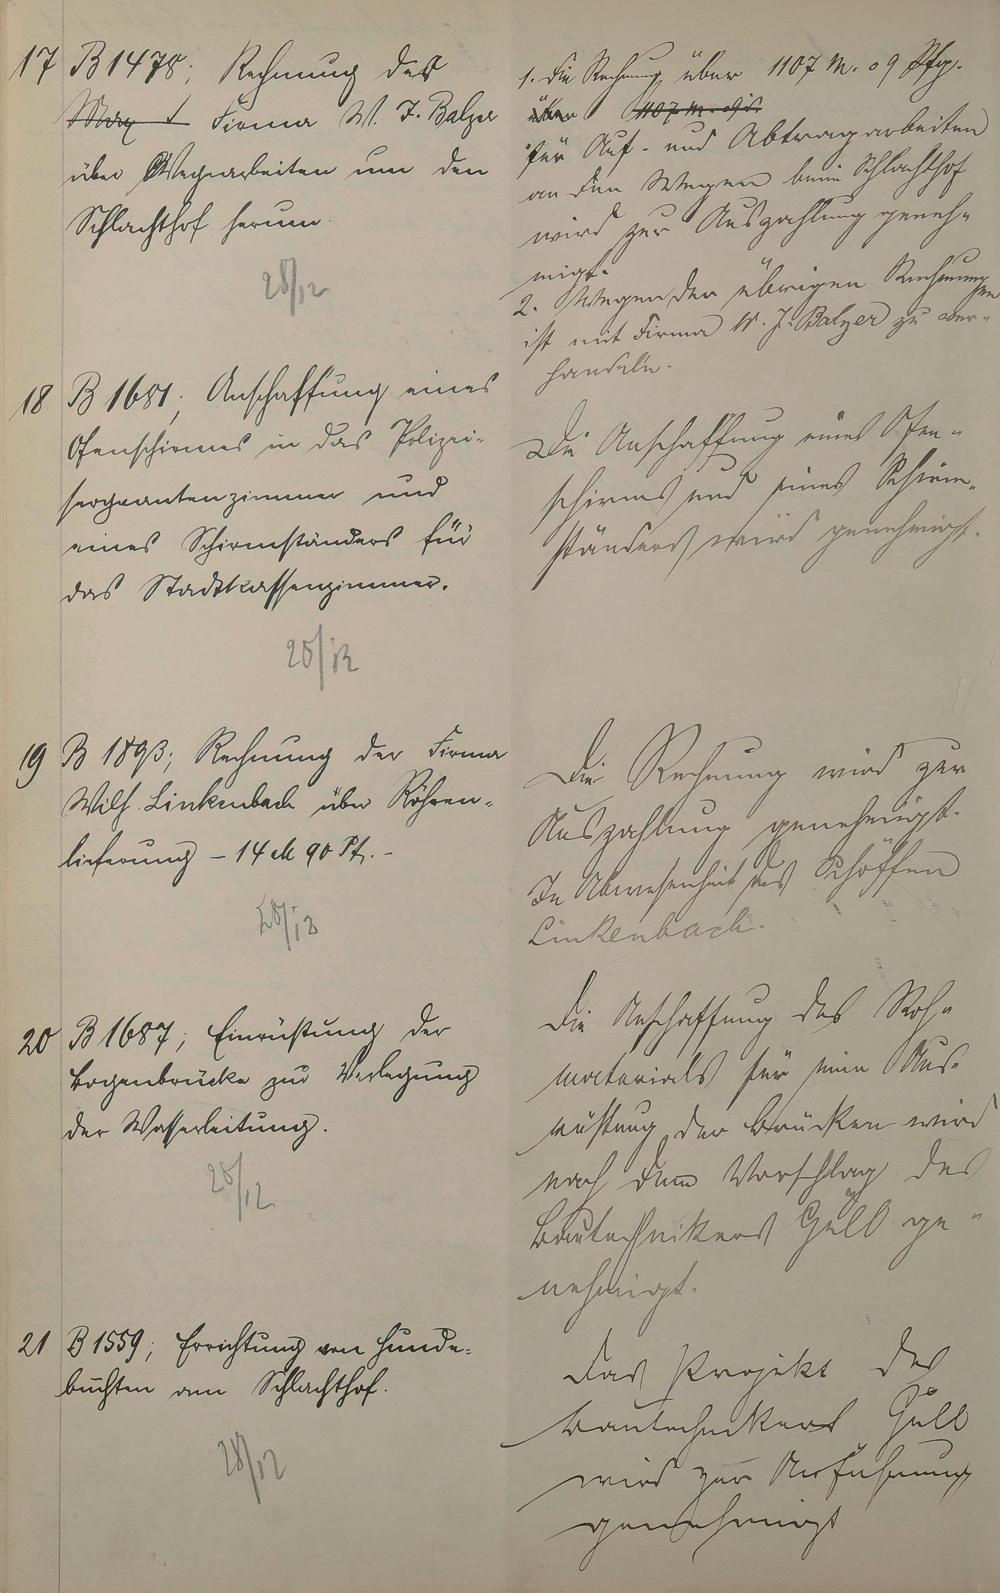 17 B 1478; Rechnung der
Firma W. J. Balzer
über Wegearbeiten um den
Schlachthof herum.
28/12
1. Die Rechnung über 1107 M. 09 Pfg.
über 1107 M. 09
für Auf- und Abtragarbeiten
an den Wegen beim Schlachthof
wird zur Auszahlung geneh-
migt.
2. Wegen der übrigen Rechnungen
ist mit Firma W. J. Balzer zu ver-
handeln.
18 B 1681; Anschaffung eines
Ofenschirmes in das Polizei-
sergeantenzimmer und
eines Schirmständers für
das Stadtkassenzimmer.
28/12
Die Anschaffung eines Ofen-
schirms und eines Schirm-
ständers wird genehmigt.
19 B 1893; Rechnung der Firma
Wilh. Linkenbach über Röhren-
lieferung – 14 M 90 Pf. –
28/12
Die Rechnung wird zur
Auszahlung genehmigt.
In Abwesenheit des Schöffen
Linkenbach.
20 B 1687; Einrüstung der
Bogenbrücke zur Verlegung
der Wasserleitung.
28/12
Die Anschaffung des Roh-
materials für eine Aus-
rüstung der Brücken wird
nach dem Vorschlag des
Bautechnikers Güll ge-
nehmigt.
21 B 1559; Errichtung von Hunde-
buchten am Schlachthof.
28/12
Das Projekt des
Bautechnikers Güll
wird zur Ausführung
genehmigt